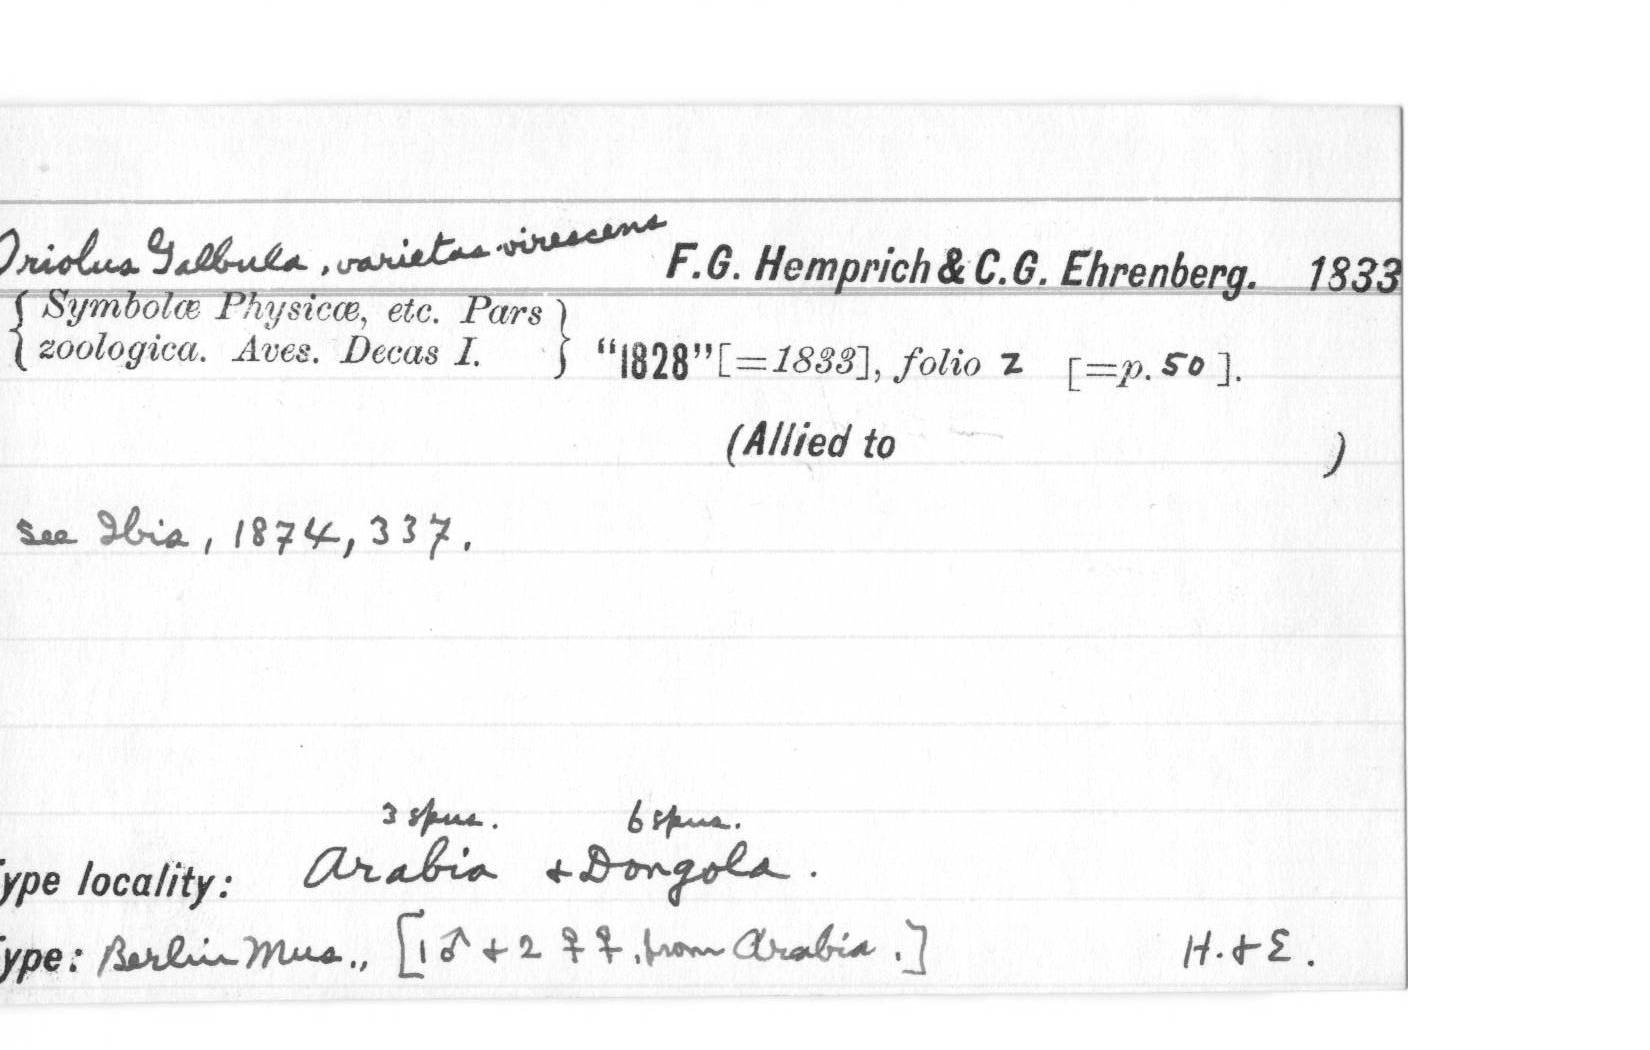 Oriolus Galbula, varietas virescens F.G. Hemprich & C.G. Ehrenberg. 1833
{ Symbolæ Physicæ, etc. Pars }
{ zoologica. Aves. Decas I. } "1828" [=1833], folio z [=p. 50].
(Allied to )
See Ibis, 1874, 337.
3 spns. 6 spns.
ype locality: Arabia + Dongola.
ype: Berlin Mus., [1 ♂ + 2 ♀♀, from Arabia.] H. & E.